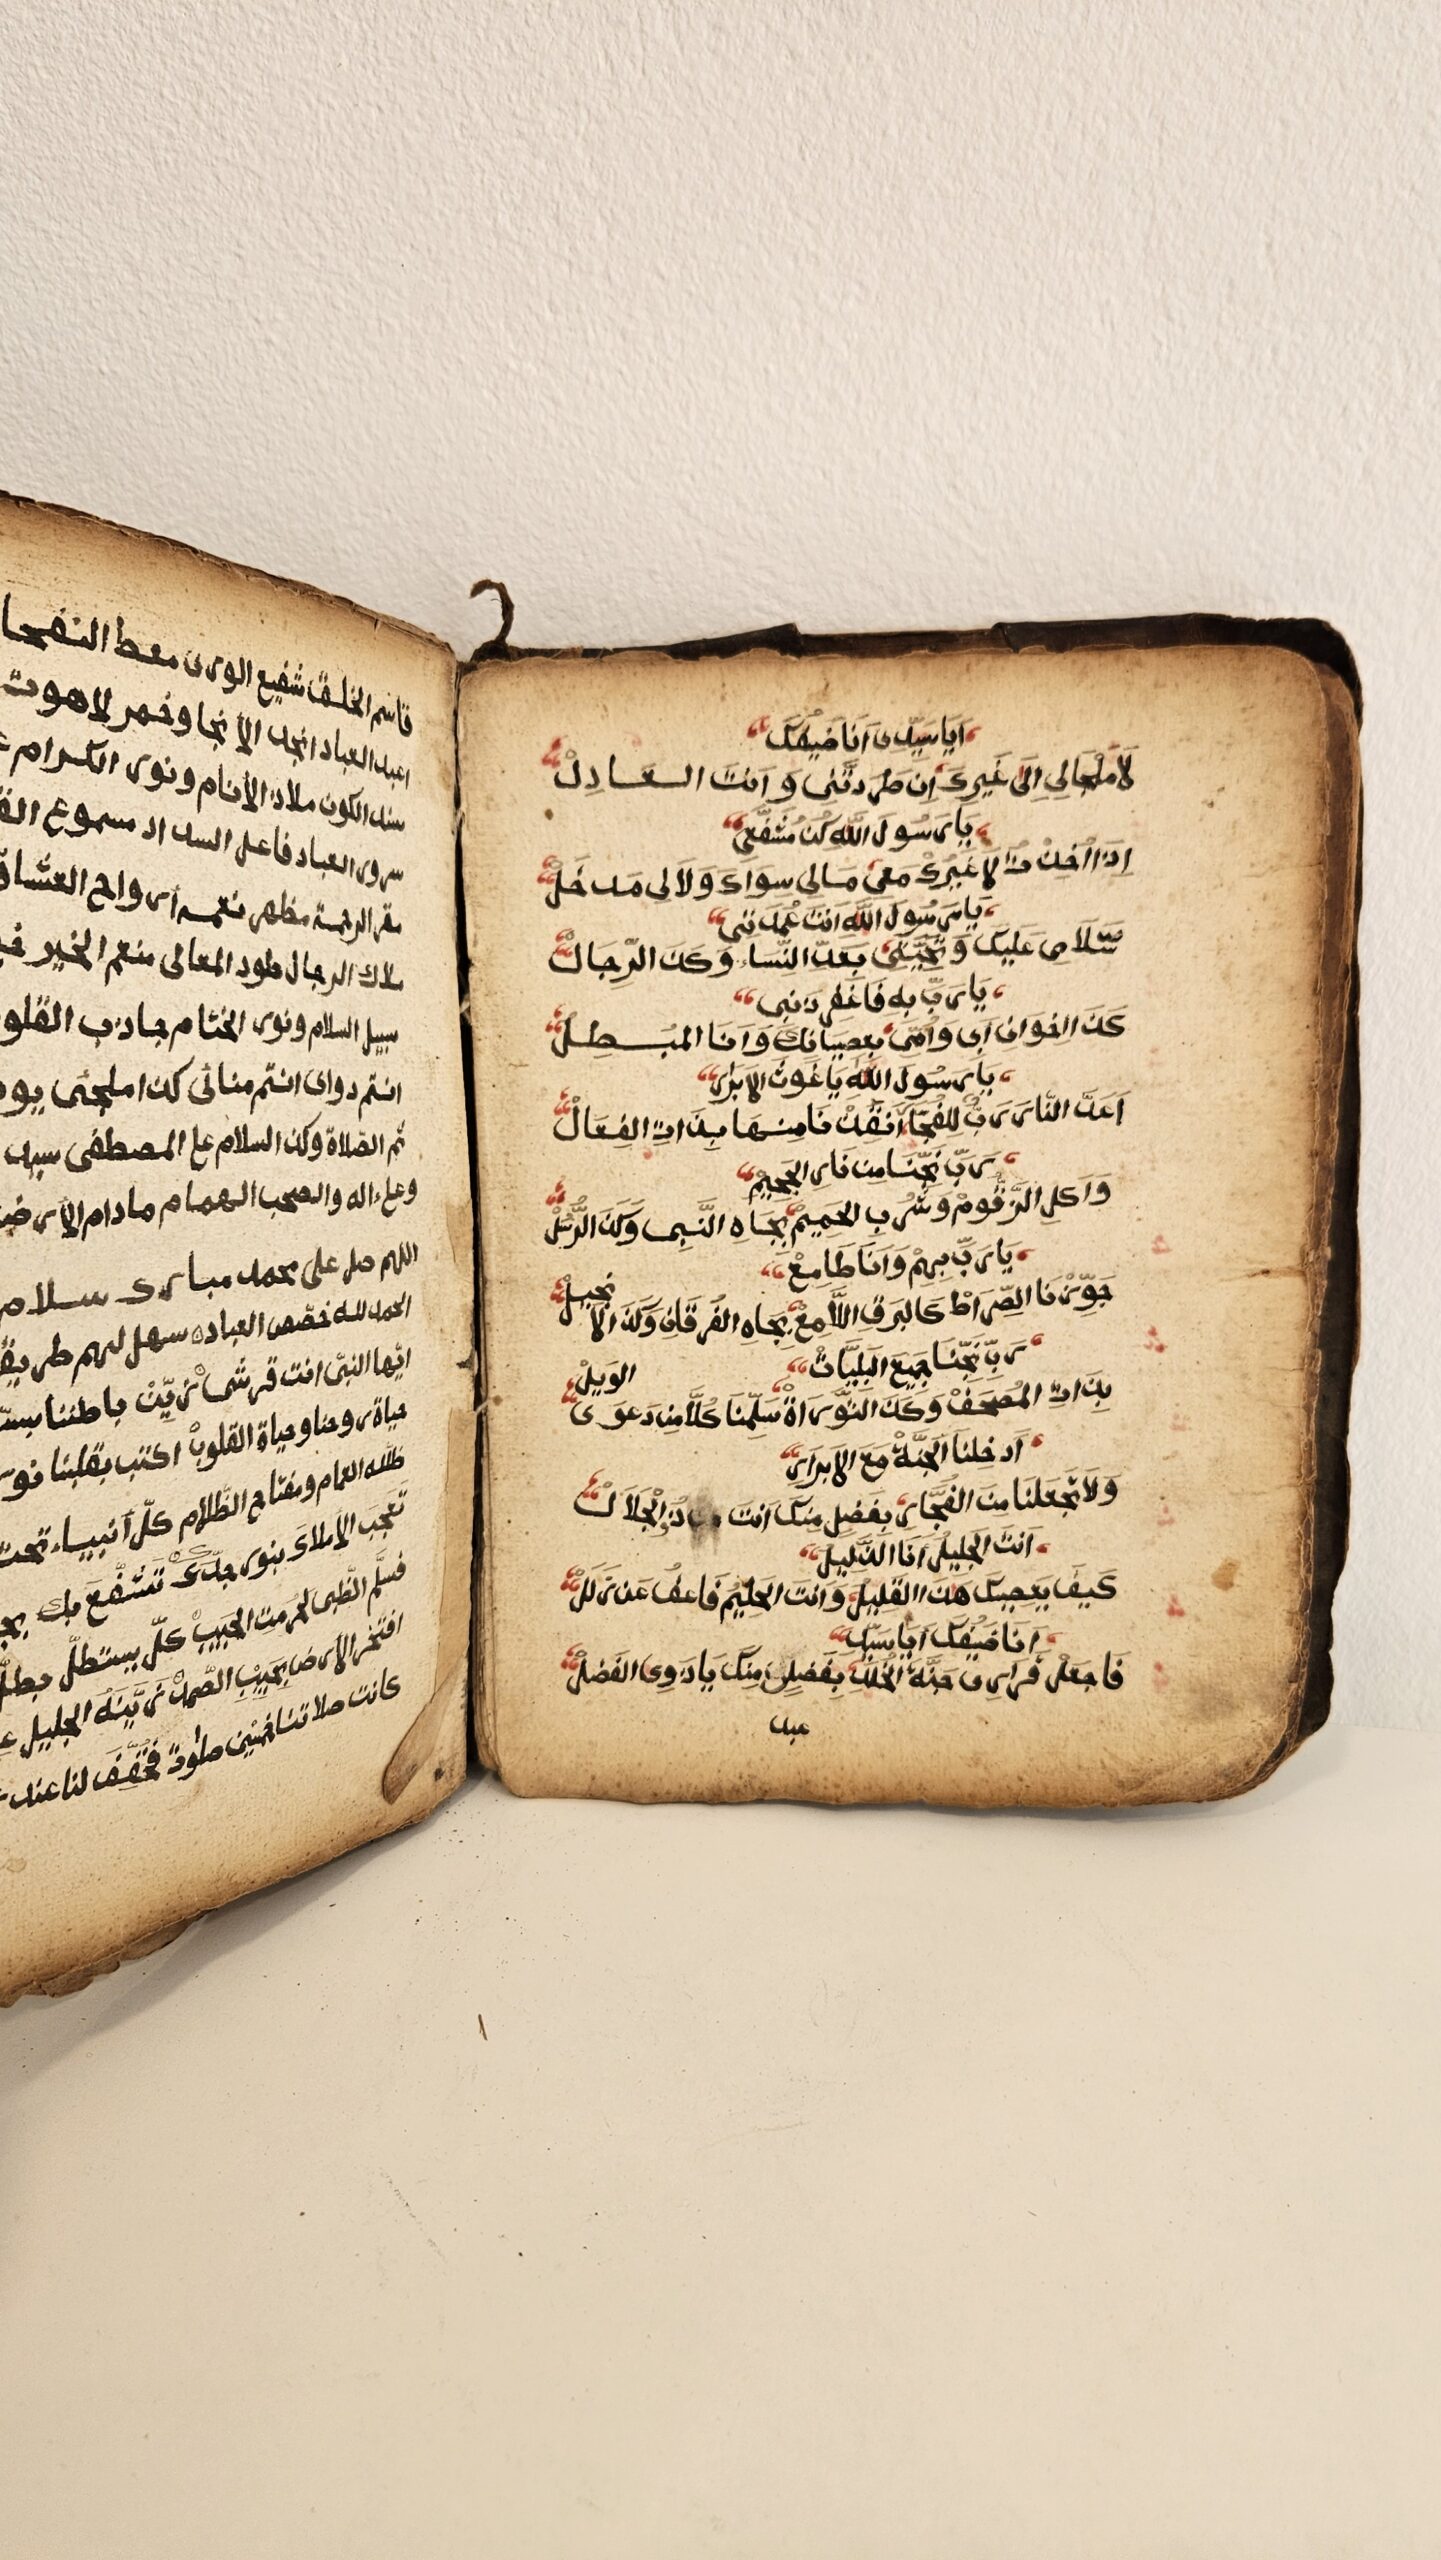 اَيَا سَيِّدِى اَنَا ضَيْفُكَ
لَا مَلْجَا لِى اِلَى غَيرِكَ اِن طَرَدتَّنِى وَ اَنتَ الـعَـادِلْ
يَا رَسُولَ اللّٰهِ كُن مُشَفَّعِى
اِذَا اُدْخِلْتُ لَا غَيْرُكَ مَعِى مَالِى سِوَاكَ وَلَا لِى مَدخَلْ
يَا رَسُولَ اللّٰهِ اَنتَ عُمدَتِى
سَلَامِى عَلَيكَ وَتَحِيَّتِى بَعَدِّ النِّسَاءِ وَكَذَ الرِّجَالْ
يَا رَبِّ بِهِ فَاغفِر ذَنبِى
كَذَ اخوَانِ اَبِى وَاُمِّى بِعِصيَانِكَ وَاَنَا المُبـطِـلْ
يَا رَسُولَ اللّٰهِ يَا غَوثَ الاَبرَارِ
اَعَدَّ النَّارَ رَبُّ لِلفُجَّارِ اَنقِذْنَا مِنـهَا بِذَاتِ الفِعَالْ
رَبِّ نَجِّنَا مِن نَارِ الجَحِيمْ
وَاَكلِ الزَّقُّومْ وَشُربِ الحَمِيمْ بِجَاهِ النَّبِى وَكَذَ الرُّسُلْ
يَا رَبِّ بِهِمْ وَاَنَا طَامِعْ
جَوِّزْنَا الصِّرَاطْ كَالبَرقِ اللَّامِعْ بِجَاهِ الفُرقَانِ وَكَذَ الاِنجِيلْ
رَبِّ نَجِّنَا جَمِيعَ البَلِيَّاتْ
بِذَاتِ المُصحَفْ وَكَذَ التَّورَاةْ سَلِّمنَا كُلًّا مِن دَعوَى الوَيلْ
اَدخِلنَا الجَنَّةْ مَعَ الاَبرَارِ
وَلَا تَجعَلنَا مِنَ الفُجَّارِ بِفَضلٍ مِنكَ اَنتَ ذُو الجَلَالْ
اَنتَ الجَلِيلْ اَنَا الذَّلِيلْ
كَيفَ يَعصِيكَ هَذَا القَلِيلْ وَاَنتَ الحَلِيمْ فَاعفُ عَن زَلَلْ
اَنَا ضَيفُكَ اَيَا سَيِّدِى
فَاجعَل قَرَارِى فِى جَنَّةِ الخُلدِ بِفَضلٍ مِنكَ يَا ذَوِى الفَضلْ
عبد
قاسم الخلق شفيع الورى معط النفحا
اعبد العباد انجد الا نجا وخمر لاهوت
سند الكون ملاذ الأنام ونور الكرام
سرور العباد فاعل السداد مسموع
مقر الرحمة مظهر نعمه أرواح العشاق
ملاك الرجال طود المعالى منعم الخير
سبيل السلام ونور الختام جاذب القلو
انتم دوائى انتم منائى كن املجئى يوم
ثم الصلاة وكذ السلام على المصطفى سيد
وعلى اله والصحب الهمام مادام الأرض
اللهم صل على محمد مبارك سلام
الحمد لله خصّص العباد سهل لهم طريق
ايّها النبىّ انت قرشى زيّنْ باطننا
حياة روحنا وحياة القلوبْ اكتب بقلبنا نور
ظلّله الغمام ومفتاح الظّلام كلّ أنبياء تحت
تعجب الأملاك بنور جدّك تشفع بك
فسلّم الظّبى لحرمت الحبيبْ كلّ يستظلّ
افتخر الأرض بحبيب الصّمد زيّنه الجليل
كانت صلاتنا خمسين صلوة فخفّف لنا عند